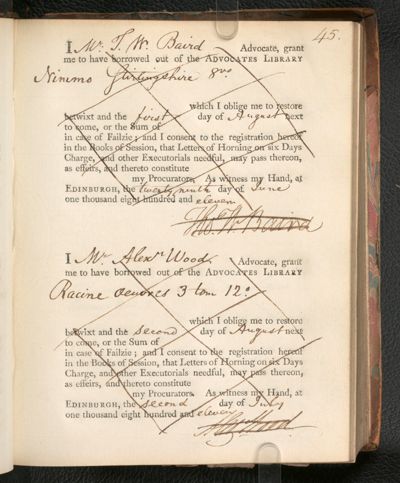 45.
I Mr. T. W. Baird Advocate, grant
me to have borrowed out of the ADVOCATES LIBRARY
Nimmo Stirlingshire 8vo
which I oblige me to restore
betwixt and the first day of August next
to come, or the Sum of
in case of Failzie; and I consent to the registration hereof
in the Books of Session, that Letters of Horning on six Days
Charge, and other Executorials needful, may pass thereon,
as effeirs, and thereto constitute
my Procurators. As witness my Hand, at
EDINBURGH, the twenty ninth day of June
one thousand eight hundred and eleven
Tho. W. Baird
I Mr Alexr Wood. Advocate, grant
me to have borrowed out of the ADVOCATES LIBRARY
Racine oeuvres 3 tom 12o.
which I oblige me to restore
betwixt and the second day of August next
to come, or the Sum of
in case of Failzie; and I consent to the registration hereof
in the Books of Session, that Letters of Horning on six Days
Charge, and other Executorials needful, may pass thereon,
as effeirs, and thereto constitute
my Procurators. As witness my Hand, at
EDINBURGH, the second day of July
one thousand eight hundred and eleven
Wood